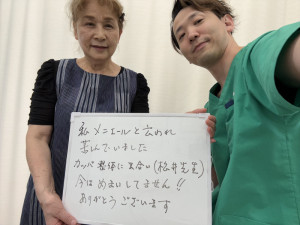 私メニエールと云われ
苦しんでいました
カッパ整体に出会い(松井先生)
今はめまいしてません!!
ありがとうございます